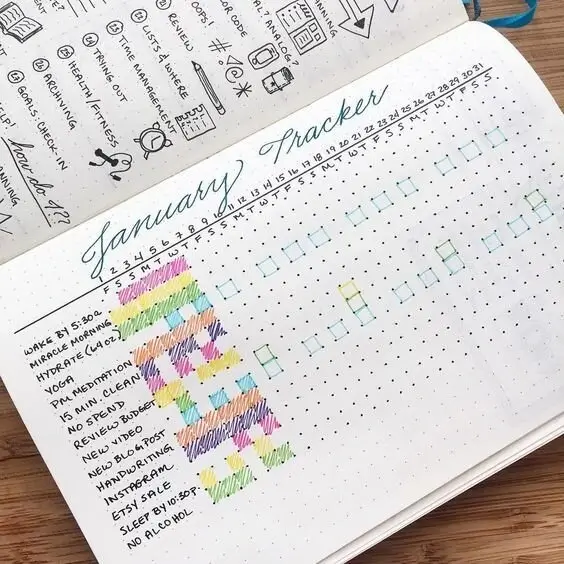 OOPS!
REVIEW
LISTS & WHERE
TIME MANAGEMENT
TRYING OUT
HEALTH/FITNESS
ARCHIVING
GOALS: CHECK-IN
how do I??
January Tracker
1 2 3 4 5 6 7 8 9 10 11 12 13 14 15 16 17 18 19 20 21 22 23 24 25 26 27 28 29 30 31
F S S M T W T F S S M T W T F S S M T W T F S S M T W T F S S
WAKE BY 5:30A
MIRACLE MORNING
HYDRATE (64 OZ)
YOGA
PM MEDITATION
15 MIN. CLEAN
NO SPEND
REVIEW BUDGET
NEW VIDEO
NEW BLOG POST
HANDWRITING
INSTAGRAM
ETSY SALE
SLEEP BY 10:30P
NO ALCOHOL